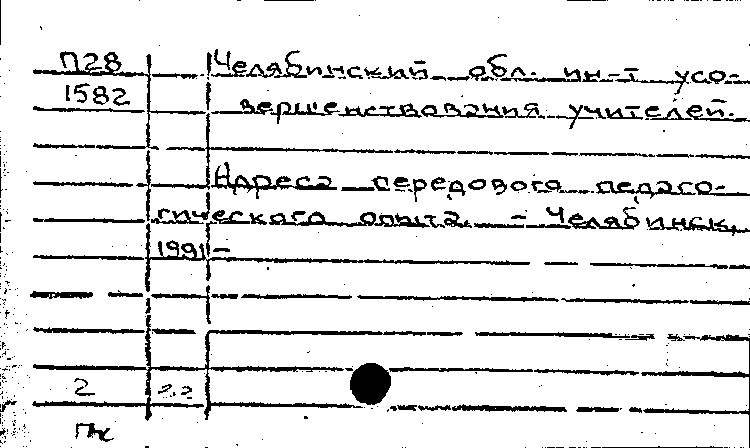 П28
1582
Челябинский обл. ин-т усо-
вершенствования учителей.
Адреса передового педаго-
гического опыта. – Челябинск,
1991–
2